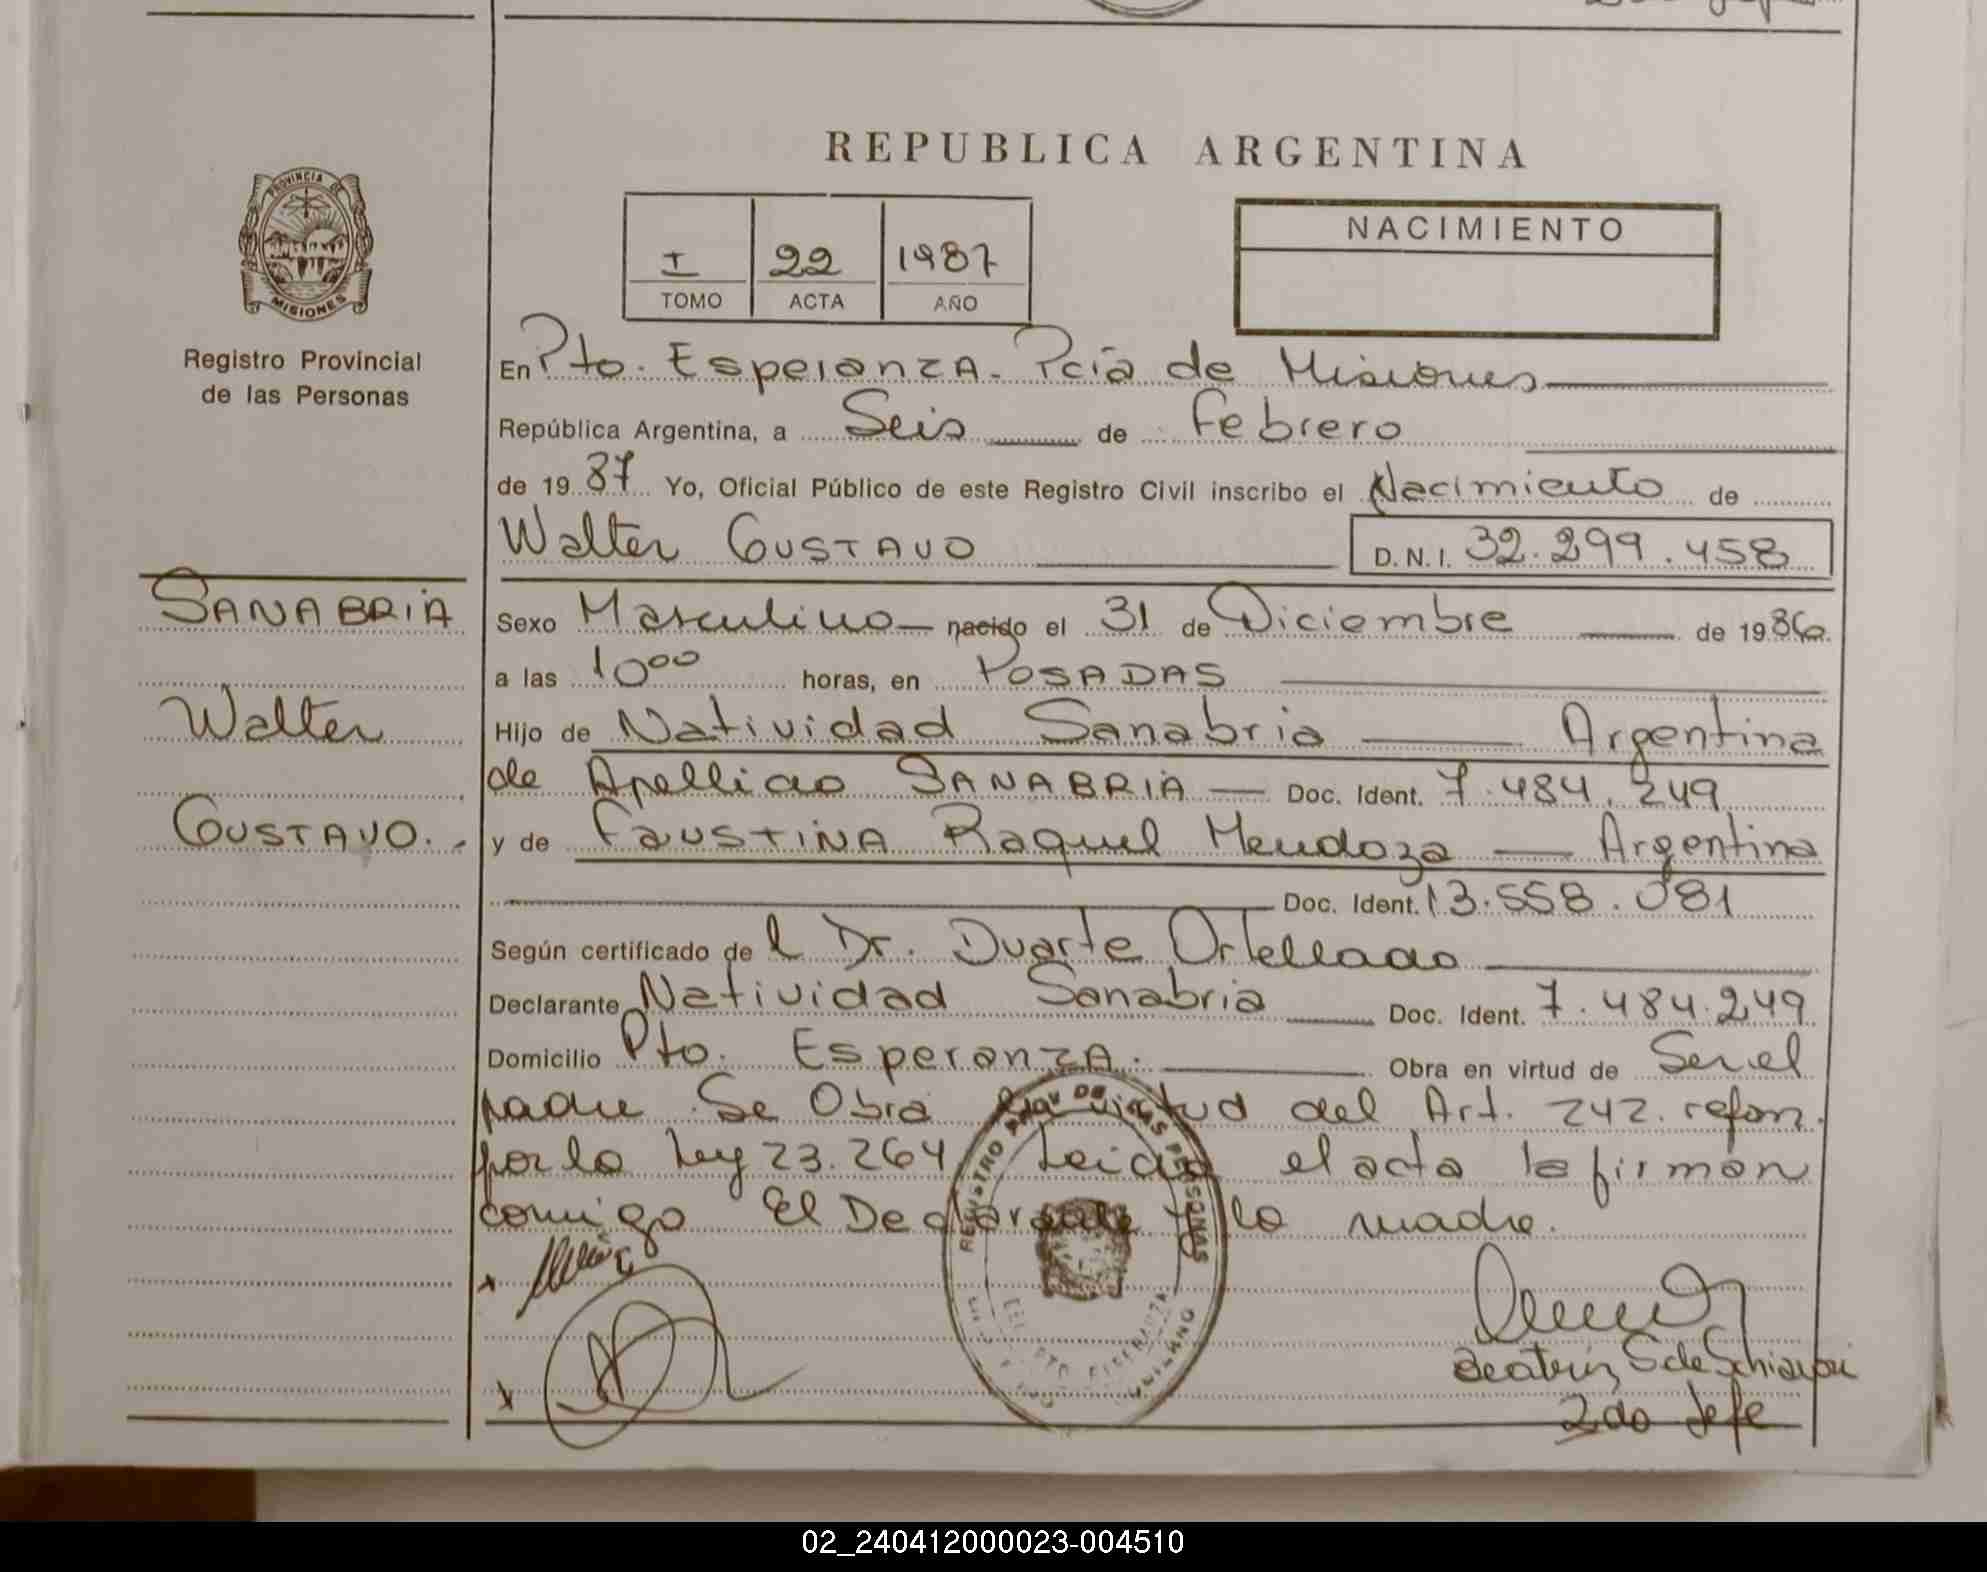 REPUBLICA ARGENTINA
PROVINCIA DE
MISIONES
Registro Provincial
de las Personas
I 22 1987
TOMO ACTA AÑO
NACIMIENTO
En Pto. Esperanza. Pcia de Misiones
República Argentina, a Seis de Febrero
de 1987 Yo, Oficial Público de este Registro Civil inscribo el Nacimiento de
Walter GUSTAVO D.N.I. 32.299.458
SANABRIA
Walter
GUSTAVO.
Sexo Masculino nacido el 31 de Diciembre de 1986
a las 10⁰⁰ horas, en POSADAS
Hijo de Natividad Sanabria Argentina
de Apellido SANABRIA Doc. Ident. 7.484.249
y de Faustina Raquel Mendoza Argentina
Doc. Ident. 13.558.081
Según certificado del Dr. Duarte Ortellado
Declarante Natividad Sanabria Doc. Ident. 7.484.249
Domicilio Pto. Esperanza. Obra en virtud de Ser el
padre Se Obra en virtud del Art. 242. refor.
por la Ley 23.264 Leida el acta la firman
comigo El Declarante y la madre.
REGISTRO PROV. DE LAS PERSONAS
Beatriz S de
2do Jefe
02_240412000023-004510